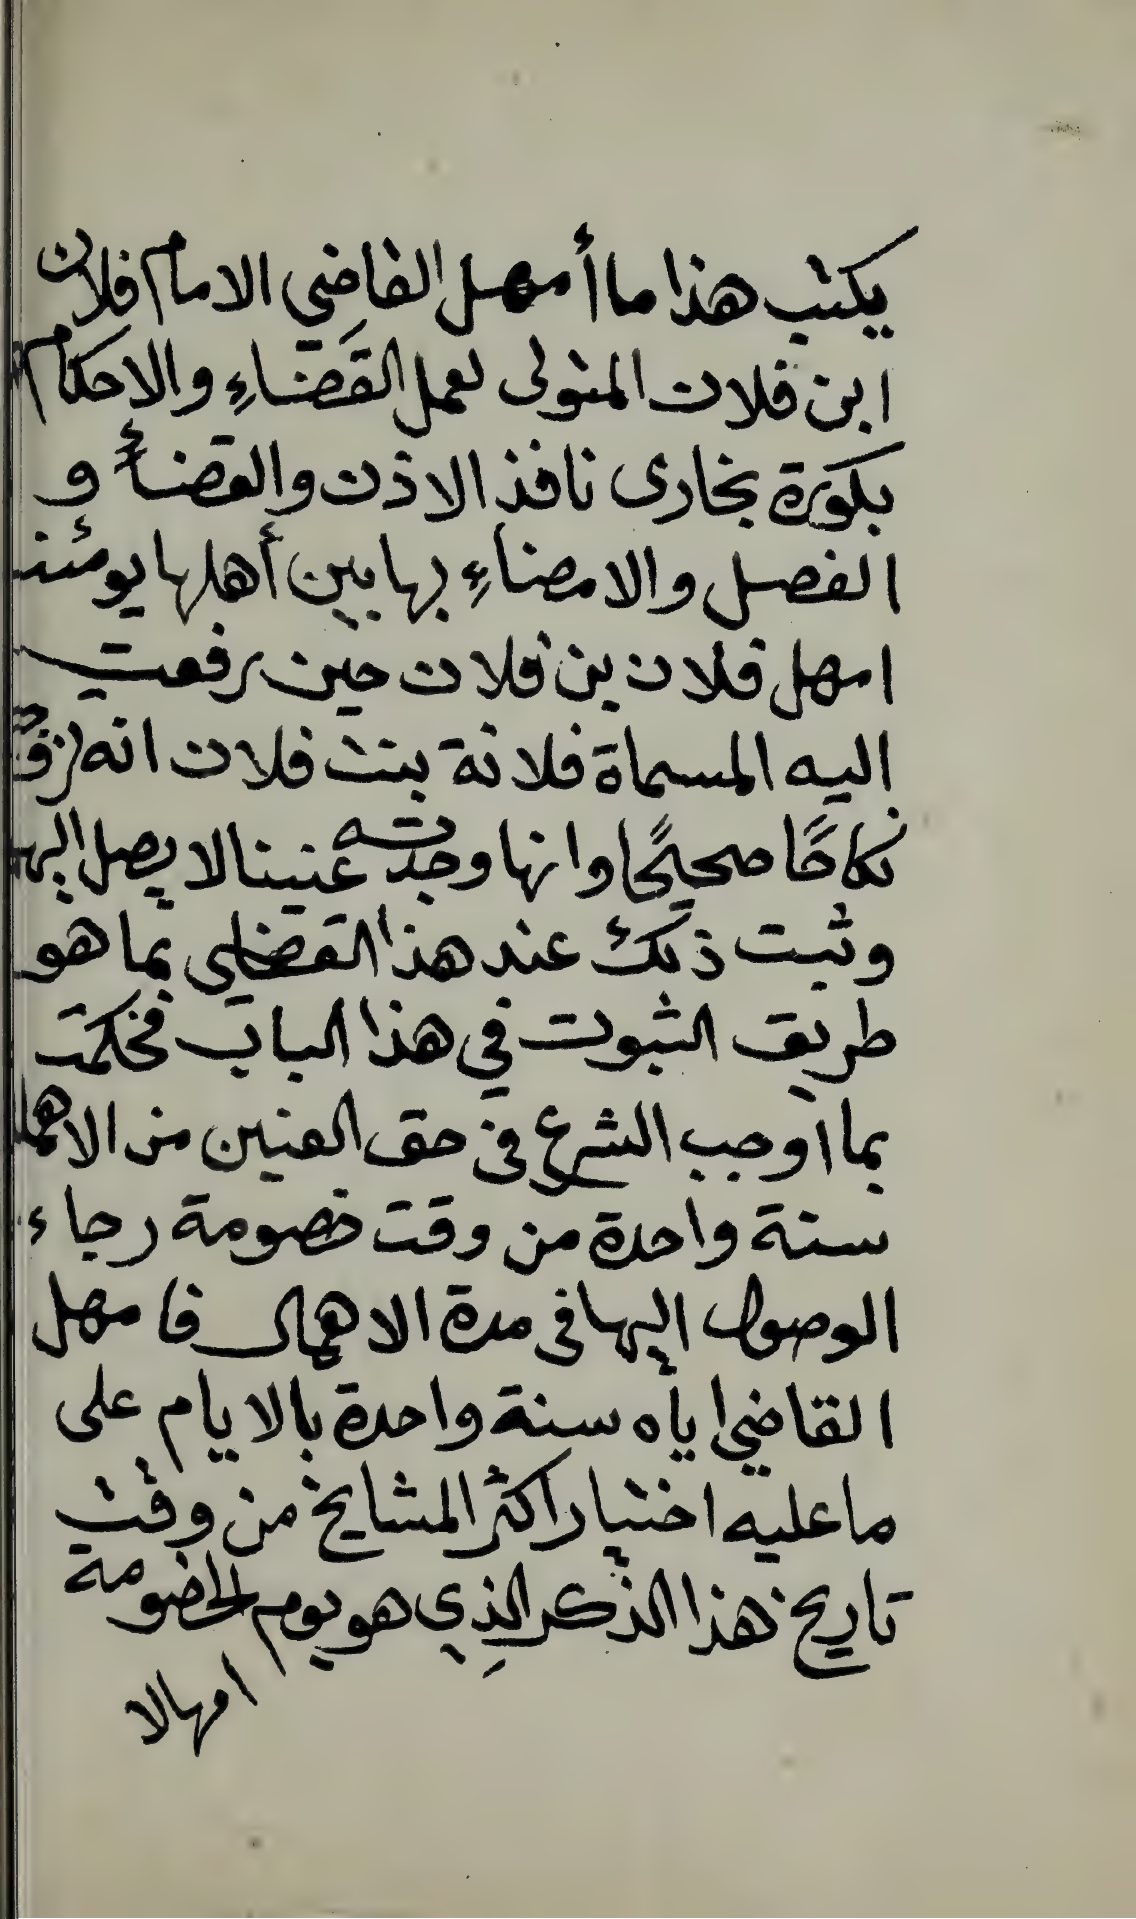 يكتب هذا ما أمهل القاضي الامام فلان
ابن فلان المتولى لعمل القَضَاءِ والاحكام
بكورة بخارى نافذ الاذن والقضاء و
الفصل والامضاءِ بها بين أهلها يومئذ
امهل فلان بن فلان حين رفعت
اليه المسماة فلانة بنت فلان انه
نكاحًا صحيحًا وانها وجدته عنينا لا يصل اليها
وثبت ذلك عند هذا القضاى بما هو
طريق الثبوت في هذا الباب فحكمت
بما اوجب الشرع فى حق العنين من الامهال
سنة واحدة من وقت خصومة رجاء
الوصول اليها فى مدة الامهال فامهل
القاضي اياه سنة واحدة بالايام على
ما عليه اختيار اكثر المشايخ من وقت
تاريخ هذا الذكر الذِي هو يوم الخضومة
امهالا